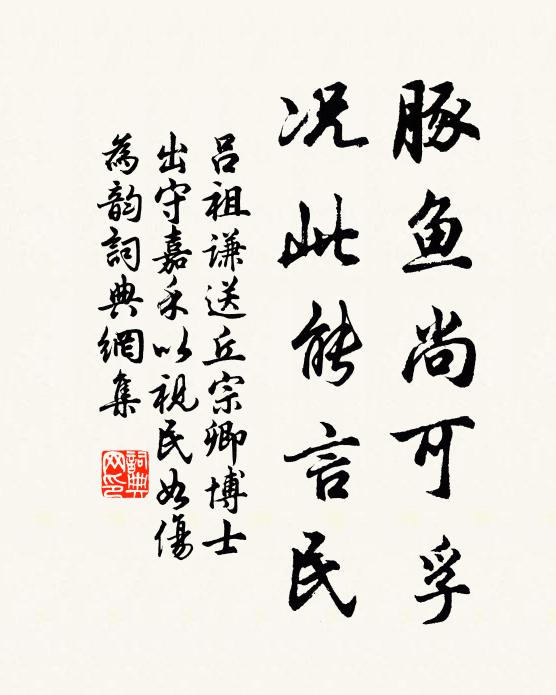 豚鱼尚可孚
况此能言民
吕祖谦送丘宗卿博士
出守嘉禾以视民如伤
为韵词典网集
词典网印